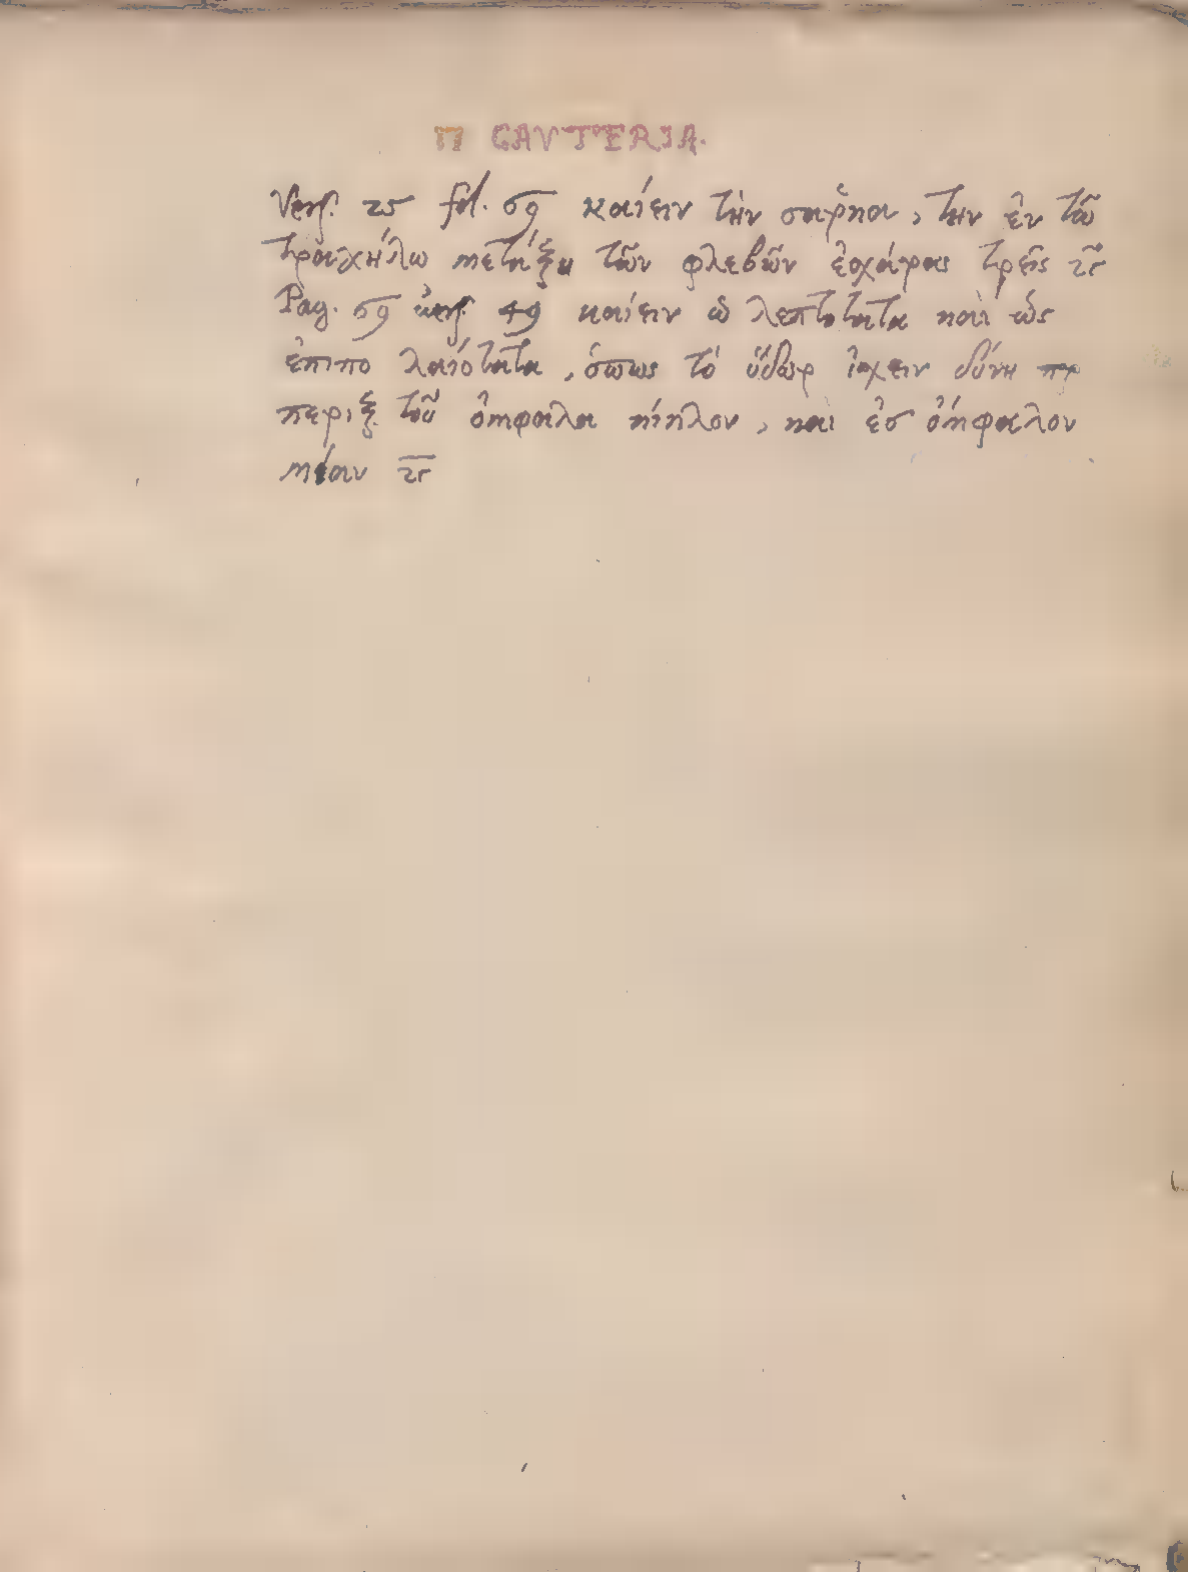 Π CAVTERIA.
Vers. 25 fol. 69 καίειν τὴν σαρκα, την ἐν τῶ
τραχήλω μεταξυ τῶν φλεβῶν ἐσχάρας τρεῖς
Pag. 69 vers. 49 καίειν ὡ λεπτοτατα καὶ ὡς
ἐπιπο λαιότατα, ὁπως τὸ ὕδωρ ἰσχειν δύνη
περιξ τοῦ ὀμφαλα κύκλον, καὶ ἐσ ὀμφαλον
μίαν